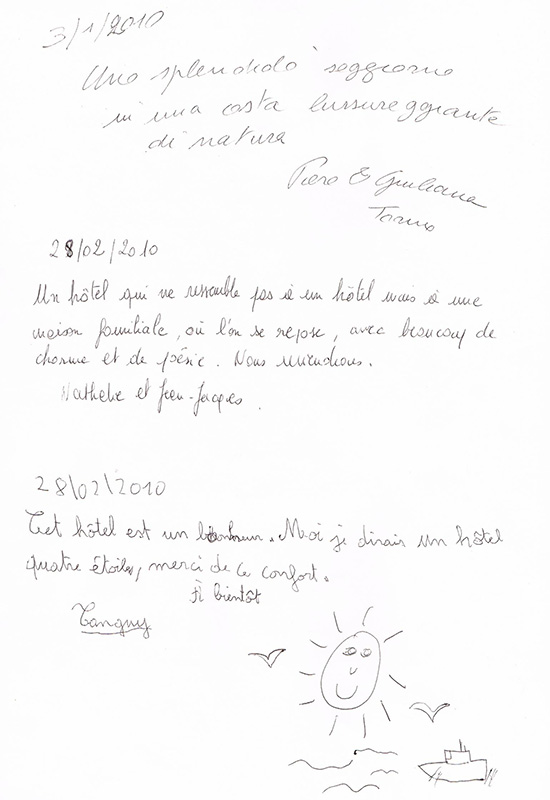 3/1/2010
Uno splendido soggiorno
in una costa lussureggiante
di natura
Piero e Giuliana
Torino
28/02/2010
Un hôtel qui ne ressemble pas à un hôtel mais à une
maison familiale, où l'on se repose, avec beaucoup de
charme et de poésie. Nous reviendrons.
Nathalie et Jean-Jacques.
28/02/2010
Cet hôtel est un bonheur. Moi je dirais un hôtel
quatre étoiles, merci de ce confort.
À bientôt
Tanguy